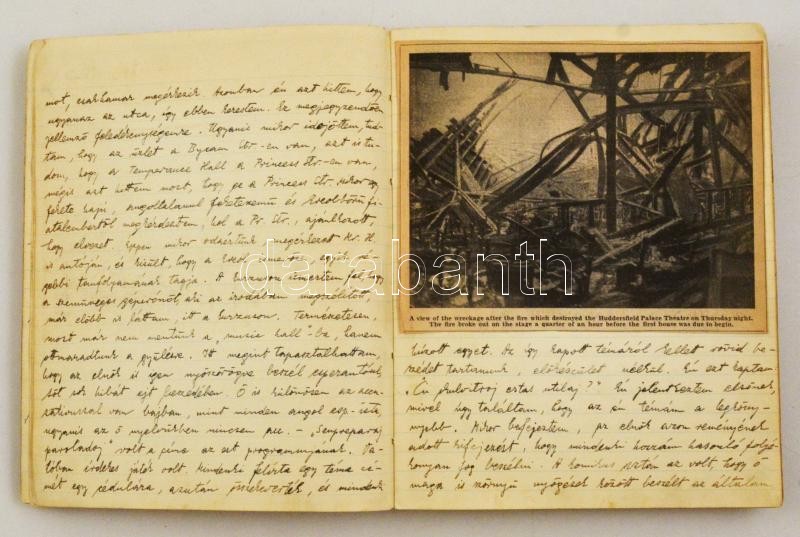 mot, csakhamar megérkezik. Azonban én azt hittem, hogy
ugyanaz az utca, így ebben kerestem. Ez megjegyzendően
jellemző feledékenységemre. Ugyanis mikor idejöttem, tud-
tam, hogy az üzlet a Byram Str-en van, azt is tu-
dom, hogy a Temperance Hall a Princess Str-en van,
mégis azt hittem most, hogy ez a Princess Str. Mikor egy
fekete hajú, angoltalanul feketeszemű és
fiatalembertől megkérdeztem, hol a Pr. Str., ajánlkozott,
hogy elvezet. Éppen mikor odaértünk megérkezett Mr. H.
is autóján, és kisült, hogy a
tanfolyamának tagja. A
a szemüveges gépírónőt, aki az irodában megszólított,
már előbb is láttam, itt a kurzuson. Természetesen,
most már nem mentünk a „music hall"-ba, hanem
ottmaradtunk a gyűlésre. Itt megint tapasztalhattam,
hogy az elnök is igen nyöszörögve beszél eszperantóul,
sőt sok hibát ejt beszédében. Ő is különösen az accu-
sativussal van bajban, mint minden angol esp.-ista,
ugyanis az ő nyelvükben nincsen acc. - „Senprepara
paroladoj" volt a címe az est programmjának. Va-
lóban érdekes játék volt. Mindenki felírta egy téma cí-
mét egy cédulára, azután összekeverték, és mindenki
A view of the wreckage after the fire which destroyed the Huddersfield Palace Theatre on Thursday night.
The fire broke out on the stage a quarter of an hour before the first house was due to begin.
húzott egyet. Az így kapott témáról kellett rövid be-
szédet tartanunk, előkészület nélkül. Én ezt kaptam:
„Ĉu pluvitroj estas utilaj?" Én jelentkeztem elsőnek,
mivel úgy találtam, hogy az én témám a legköny-
nyebb. Mikor befejeztem, az elnök azon reményének
adott kifejezést, hogy mindenki hozzám hasonló folyé-
konyan fog beszélni. A komikus aztán az volt, hogy ő
maga is szörnyű nyögések között beszélt az általam
darabanth